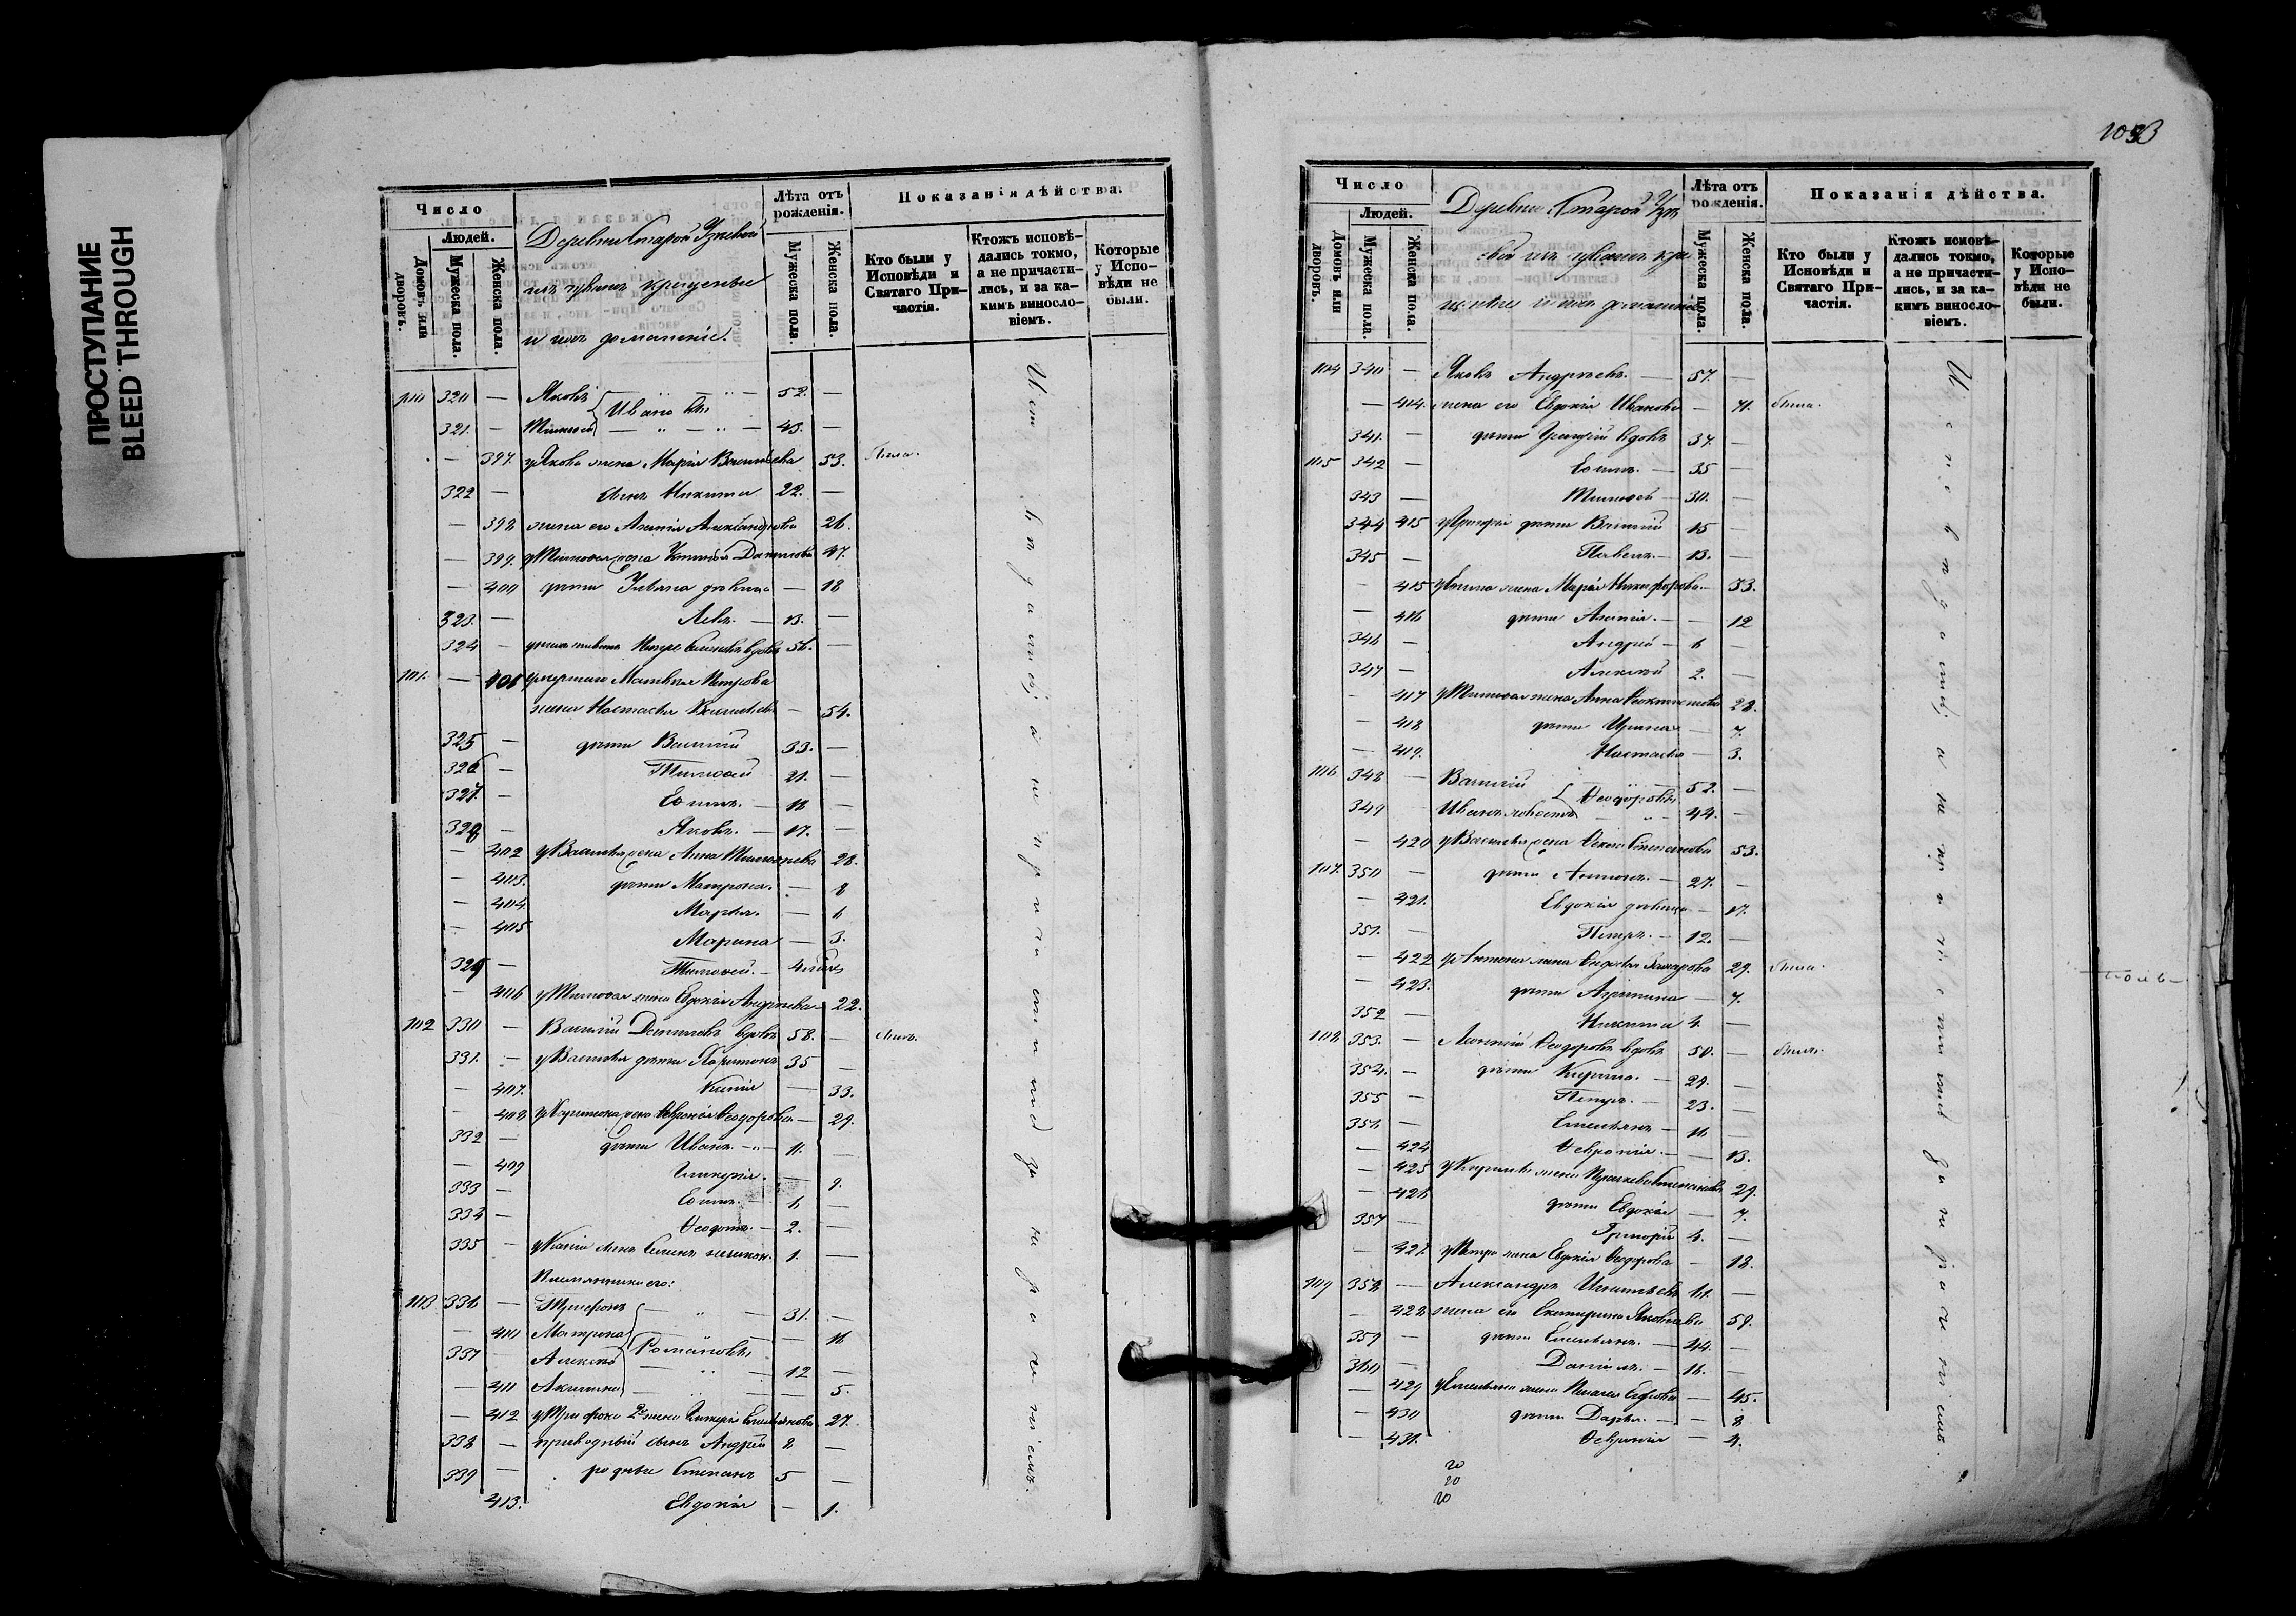 ПРОСТУПАНИЕ
BLEED THROUGH
Число
Людей.
Домовъ или дворовъ.
Мужеска пола.
Женска пола.
Деревни Старой
изъ чувашъ крещеные
и ихъ домашніе.
Лѣта отъ рожденія.
Мужеска пола.
Женска пола.
Показанія дѣйства.
Кто были у Исповѣди и Святаго Причастія.
Ктожъ исповѣдались токмо, а не причастились, и за какимъ винословіемъ.
Которые у Исповѣди не были.
100 320 — Яковъ 52. —
Ивановы
321. — Тимоѳей 43. —
— 397. у Якова жена Марія Васильева 53. была.
322 — сынъ Никита 22. —
— 398 жена его Александрова 26.
— 399. у Тимоѳея жена Данилова 47.
— 400 дѣти дѣвица — 18
323. — Левъ. — 13. —
324 — вдовъ 56. —
101. — 401 умершаго Матвѣя Петрова
жена Настасья — 54.
325 — дѣти Василій 33. —
326 — Тимоѳей 21. —
327. — Еѳимъ. — 18 —
328 — Яковъ. — 17. —
— 402 у Василья жена Анна Тимоѳеева 28.
— 403. дѣти Матрона. — 8
— 404. Марѳа. — 6
— 405 Марина — 3.
329 — Тимоѳей. —
— 406 у Тимоѳея жена Евдокія Андреева 22.
102 330 — Василій Даниловъ вдовъ 58. — былъ.
331. — у Василья дѣти Харитонъ 35 —
— 407. Ксенія — 33.
— 408 у Харитона жена Ѳевронія Ѳеодорова — 29.
332 — дѣти Иванъ. 11. —
— 409 Гликерія. — 9.
333 — Еѳимъ. — 6 —
334 — Ѳеодотъ. — 2. —
335 — у Ксеніи сынъ 1. —
Племянники его:
103 336 — Трифонъ 31. —
— 410 Матрона — 16
Романовы
337 — Алексѣй 12 —
— 411 Акилина — 5.
— 412 у Трифона 2я жена Гликерія Емельянова 27.
338 — приводный сынъ Андрей 8 —
339 — родные Степанъ 5 —
413. Евдокія — 1.
Исповѣданій, а не причастились за нераченіемъ.
1033
Число
Людей.
Домовъ или дворовъ.
Мужеска пола.
Женска пола.
Деревни Старой
изъ чувашъ кре-
щеные и ихъ домашніе
Лѣта отъ рожденія.
Мужеска пола.
Женска пола.
Показанія дѣйства.
Кто были у Исповѣди и Святаго Причастія.
Ктожъ исповѣдались токмо, а не причастились, и за какимъ винословіемъ.
Которые у Исповѣди не были.
104 340 — Яковъ Андреевъ. — 57. —
— 414. жена его Евдокія Иванова — 71. была.
341. — дѣти вдовъ 37. —
105 342 — Еѳимъ. — 35 —
343 — Тимоѳей — 30. —
344 415 у Григорія дѣти Василій 15 —
345 — Павелъ. — 13. —
— 415 у Еѳима жена Марія Никифорова — 33.
— 416 дѣти — 12
346 — Андрей — 6 —
347 — Алексѣй 2. —
— 417 у Тимоѳея жена Анна Ѳеоктистова 28.
— 418 дѣти Ирина — 7.
— 419. Настасья — 3.
106 348 — Василій 52. —
Ѳеодоровы
349 — Иванъ холостъ 44. —
— 420 у Василья жена Степанова 53.
107. 350 — дѣти Антонъ. — 27. —
— 421. Евдокія дѣвица — 17.
351. — Петръ. — 12. —
— 422 у Антона жена Захарова 29. была.
— 423. дѣти — 7.
352 — Никита 4. —
108 353. — Ѳеодоровъ вдовъ 50. — былъ.
354. — дѣти Кирилъ. — 29. —
355 — Петръ. — 23. —
356. — Емельянъ — 16 —
— 424 Ѳевронія. — 13.
— 425 у Кирила жена Прасковья Степанова 29.
— 426 дѣти Евдокія — 7.
357 — Григорій 4. —
— 427. у Петра жена Евдокія Ѳеодорова — 18.
109 358 — Александръ Игнатьевъ 61. —
— 428 жена его Екатерина Яковлева 59.
359 — дѣти Емельянъ. — 44. —
360 — Даніилъ. — 16. —
— 429 у Емельяна жена Пелагея — 45.
— 430 дѣти Дарья. — 8
— 431. Ѳевронія — 4.
20
20
20
Исповѣданій, а не причастились за нераченіемъ.